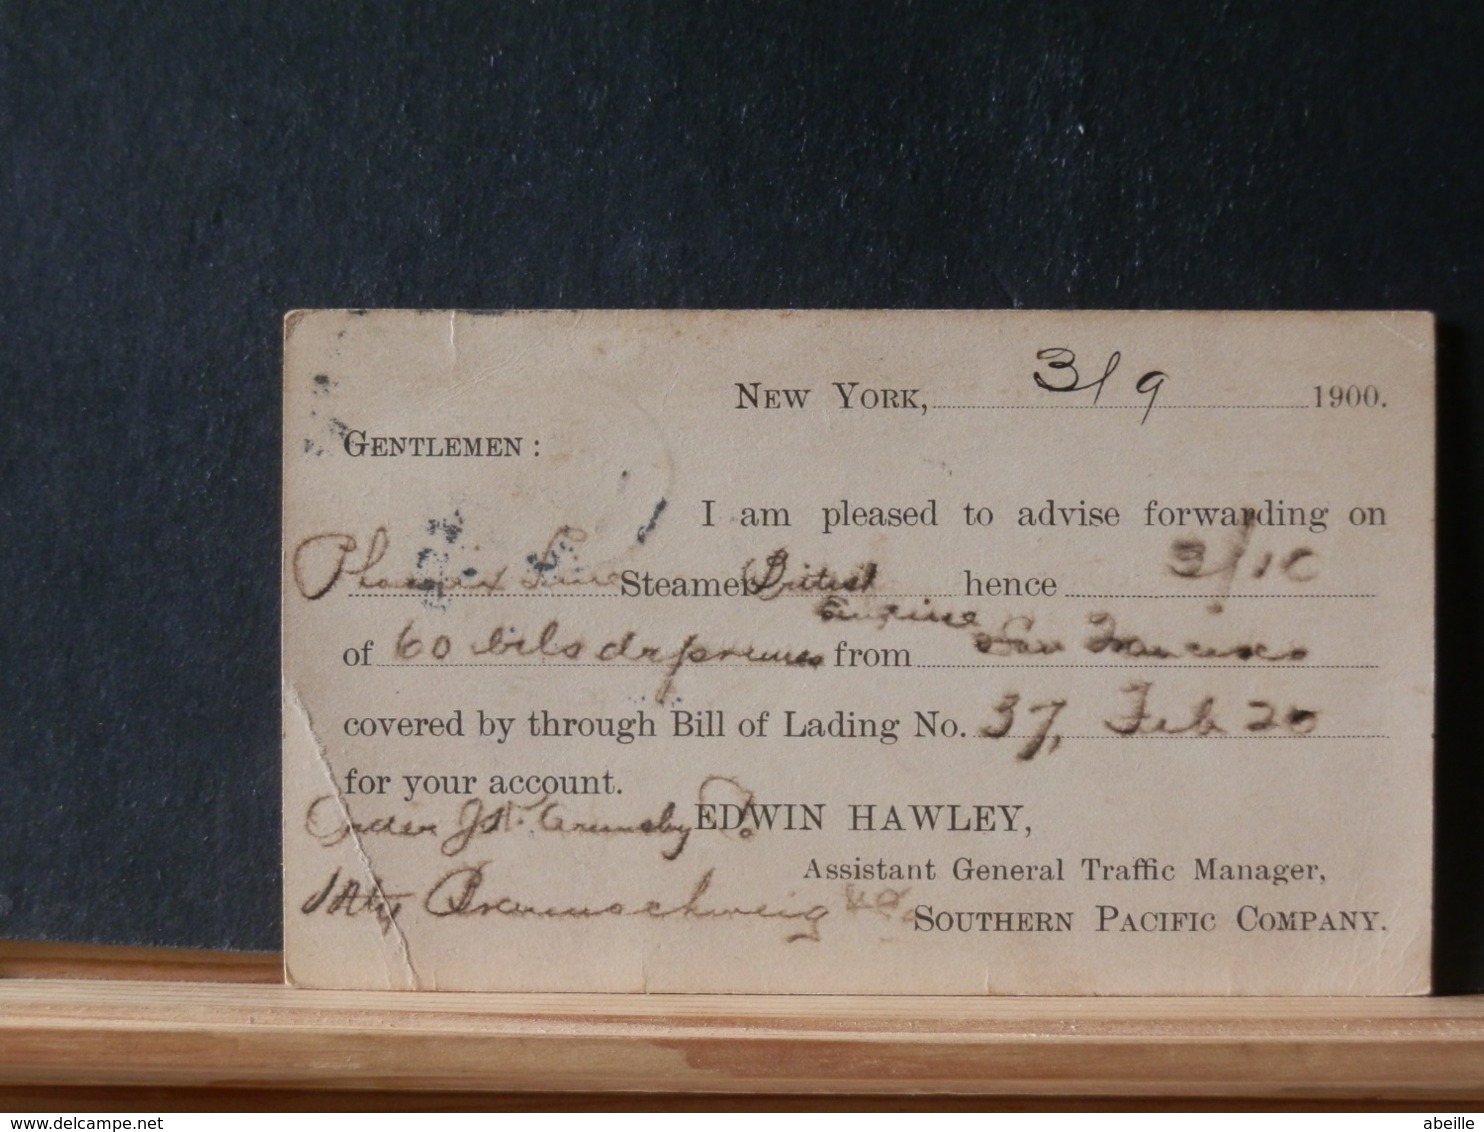 NEW YORK, 3/9 1900.
GENTLEMEN :
I am pleased to advise forwarding on
Phoenix Line Steamer British Empire hence 3/10
of 60 bxs dr prunes from San Francisco
covered by through Bill of Lading No. 37, Feb 20
for your account.
Order J K Armsby Co.
EDWIN HAWLEY,
Assistant General Traffic Manager,
Ntfy Braunschweig
SOUTHERN PACIFIC COMPANY.
www.delcampe.net
abeille